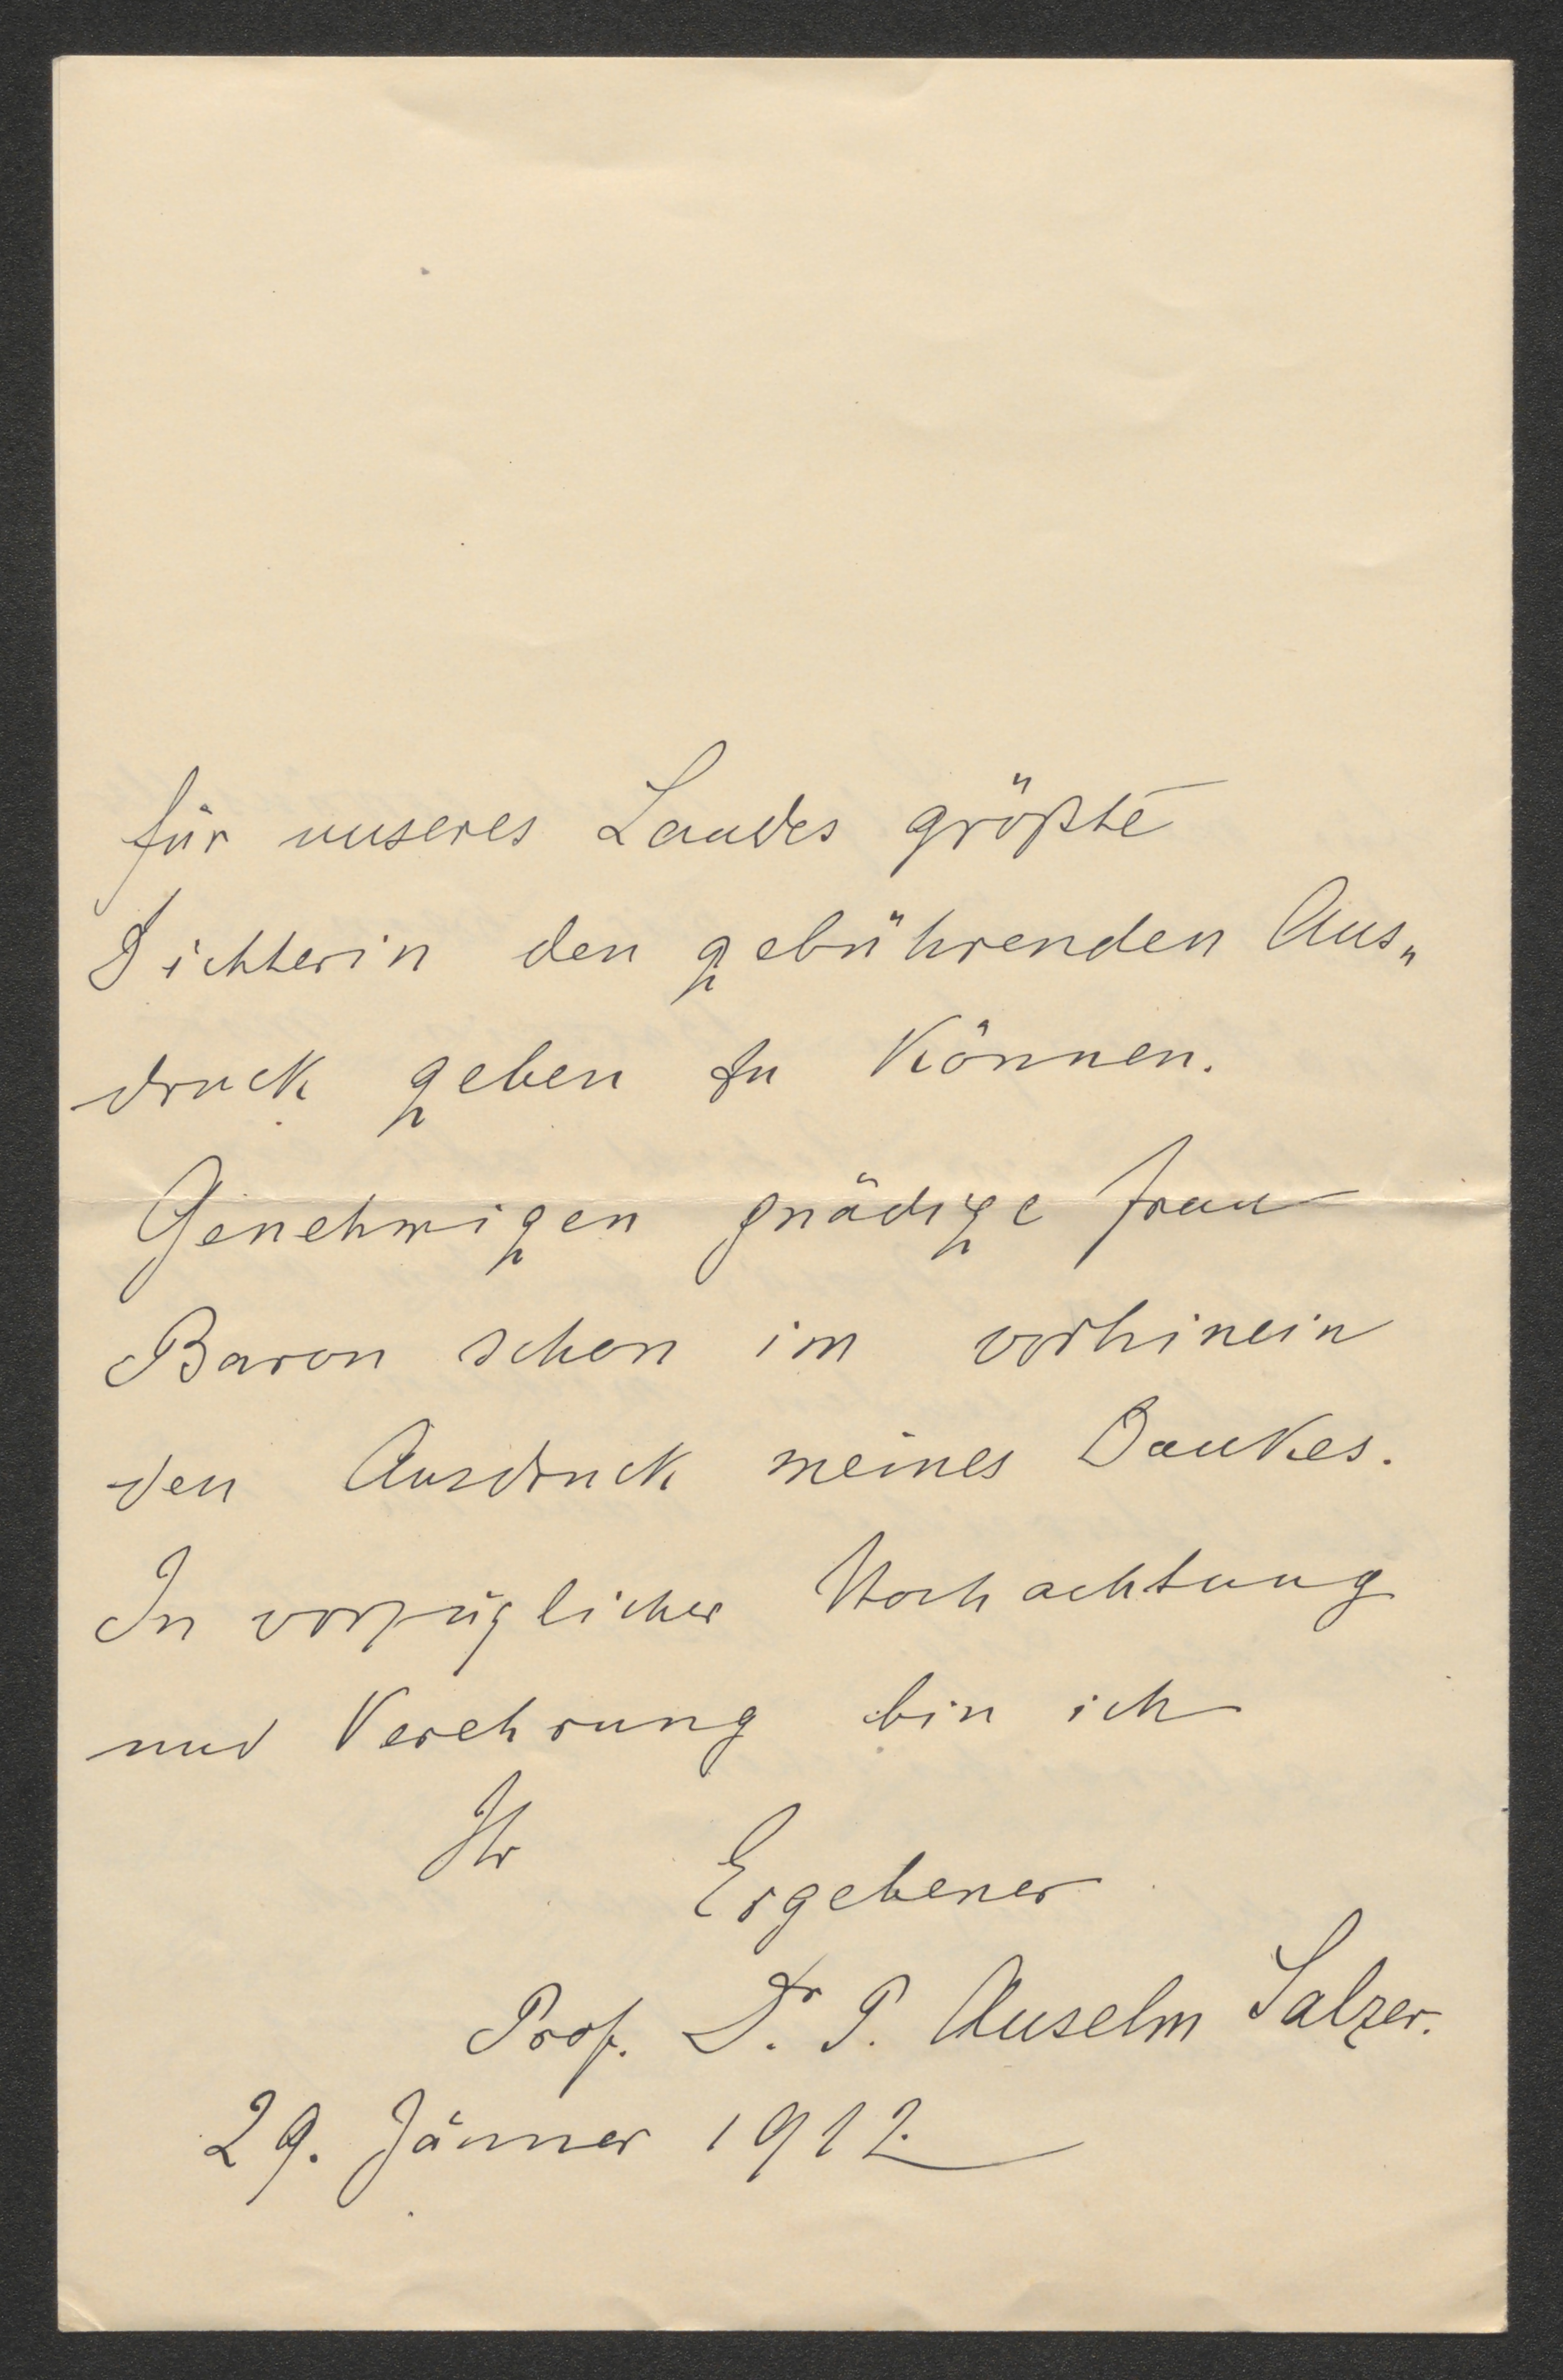 für unseres Landes größte
Dichterin den gebührenden Aus„
druck geben zu können.
Genehmigen gnädige Frau
Baron schon im vorhinein
den Ausdruck meines Dankes.
In vorzüglicher Hochachtung
und Verehrung bin ich
Ihr Ergebener
Prof. Dr. P. Anselm Salzer.
29. Jänner 1912.